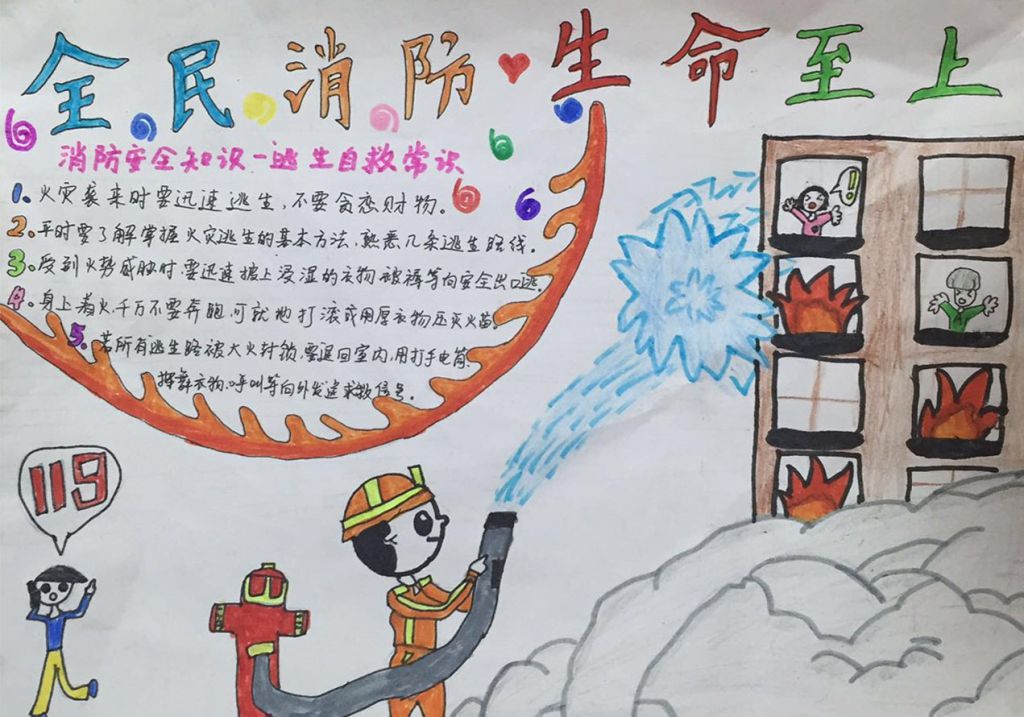 全民消防 生命至上
消防安全知识-逃生自救常识
1. 火灾袭来时要迅速逃生,不要贪恋财物。
2. 平时要了解掌握火灾逃生的基本方法,熟悉几条逃生路线。
3. 受到火势威胁时,要迅速披上浸湿的衣物、被褥等向安全出口逃。
4. 身上着火,千万不要奔跑,可就地打滚或用厚衣物压灭火苗。
5. 若所有逃生路被大火封锁,要退回室内,用打手电筒、
挥舞衣物、呼叫等向外发送求救信号。
!
119